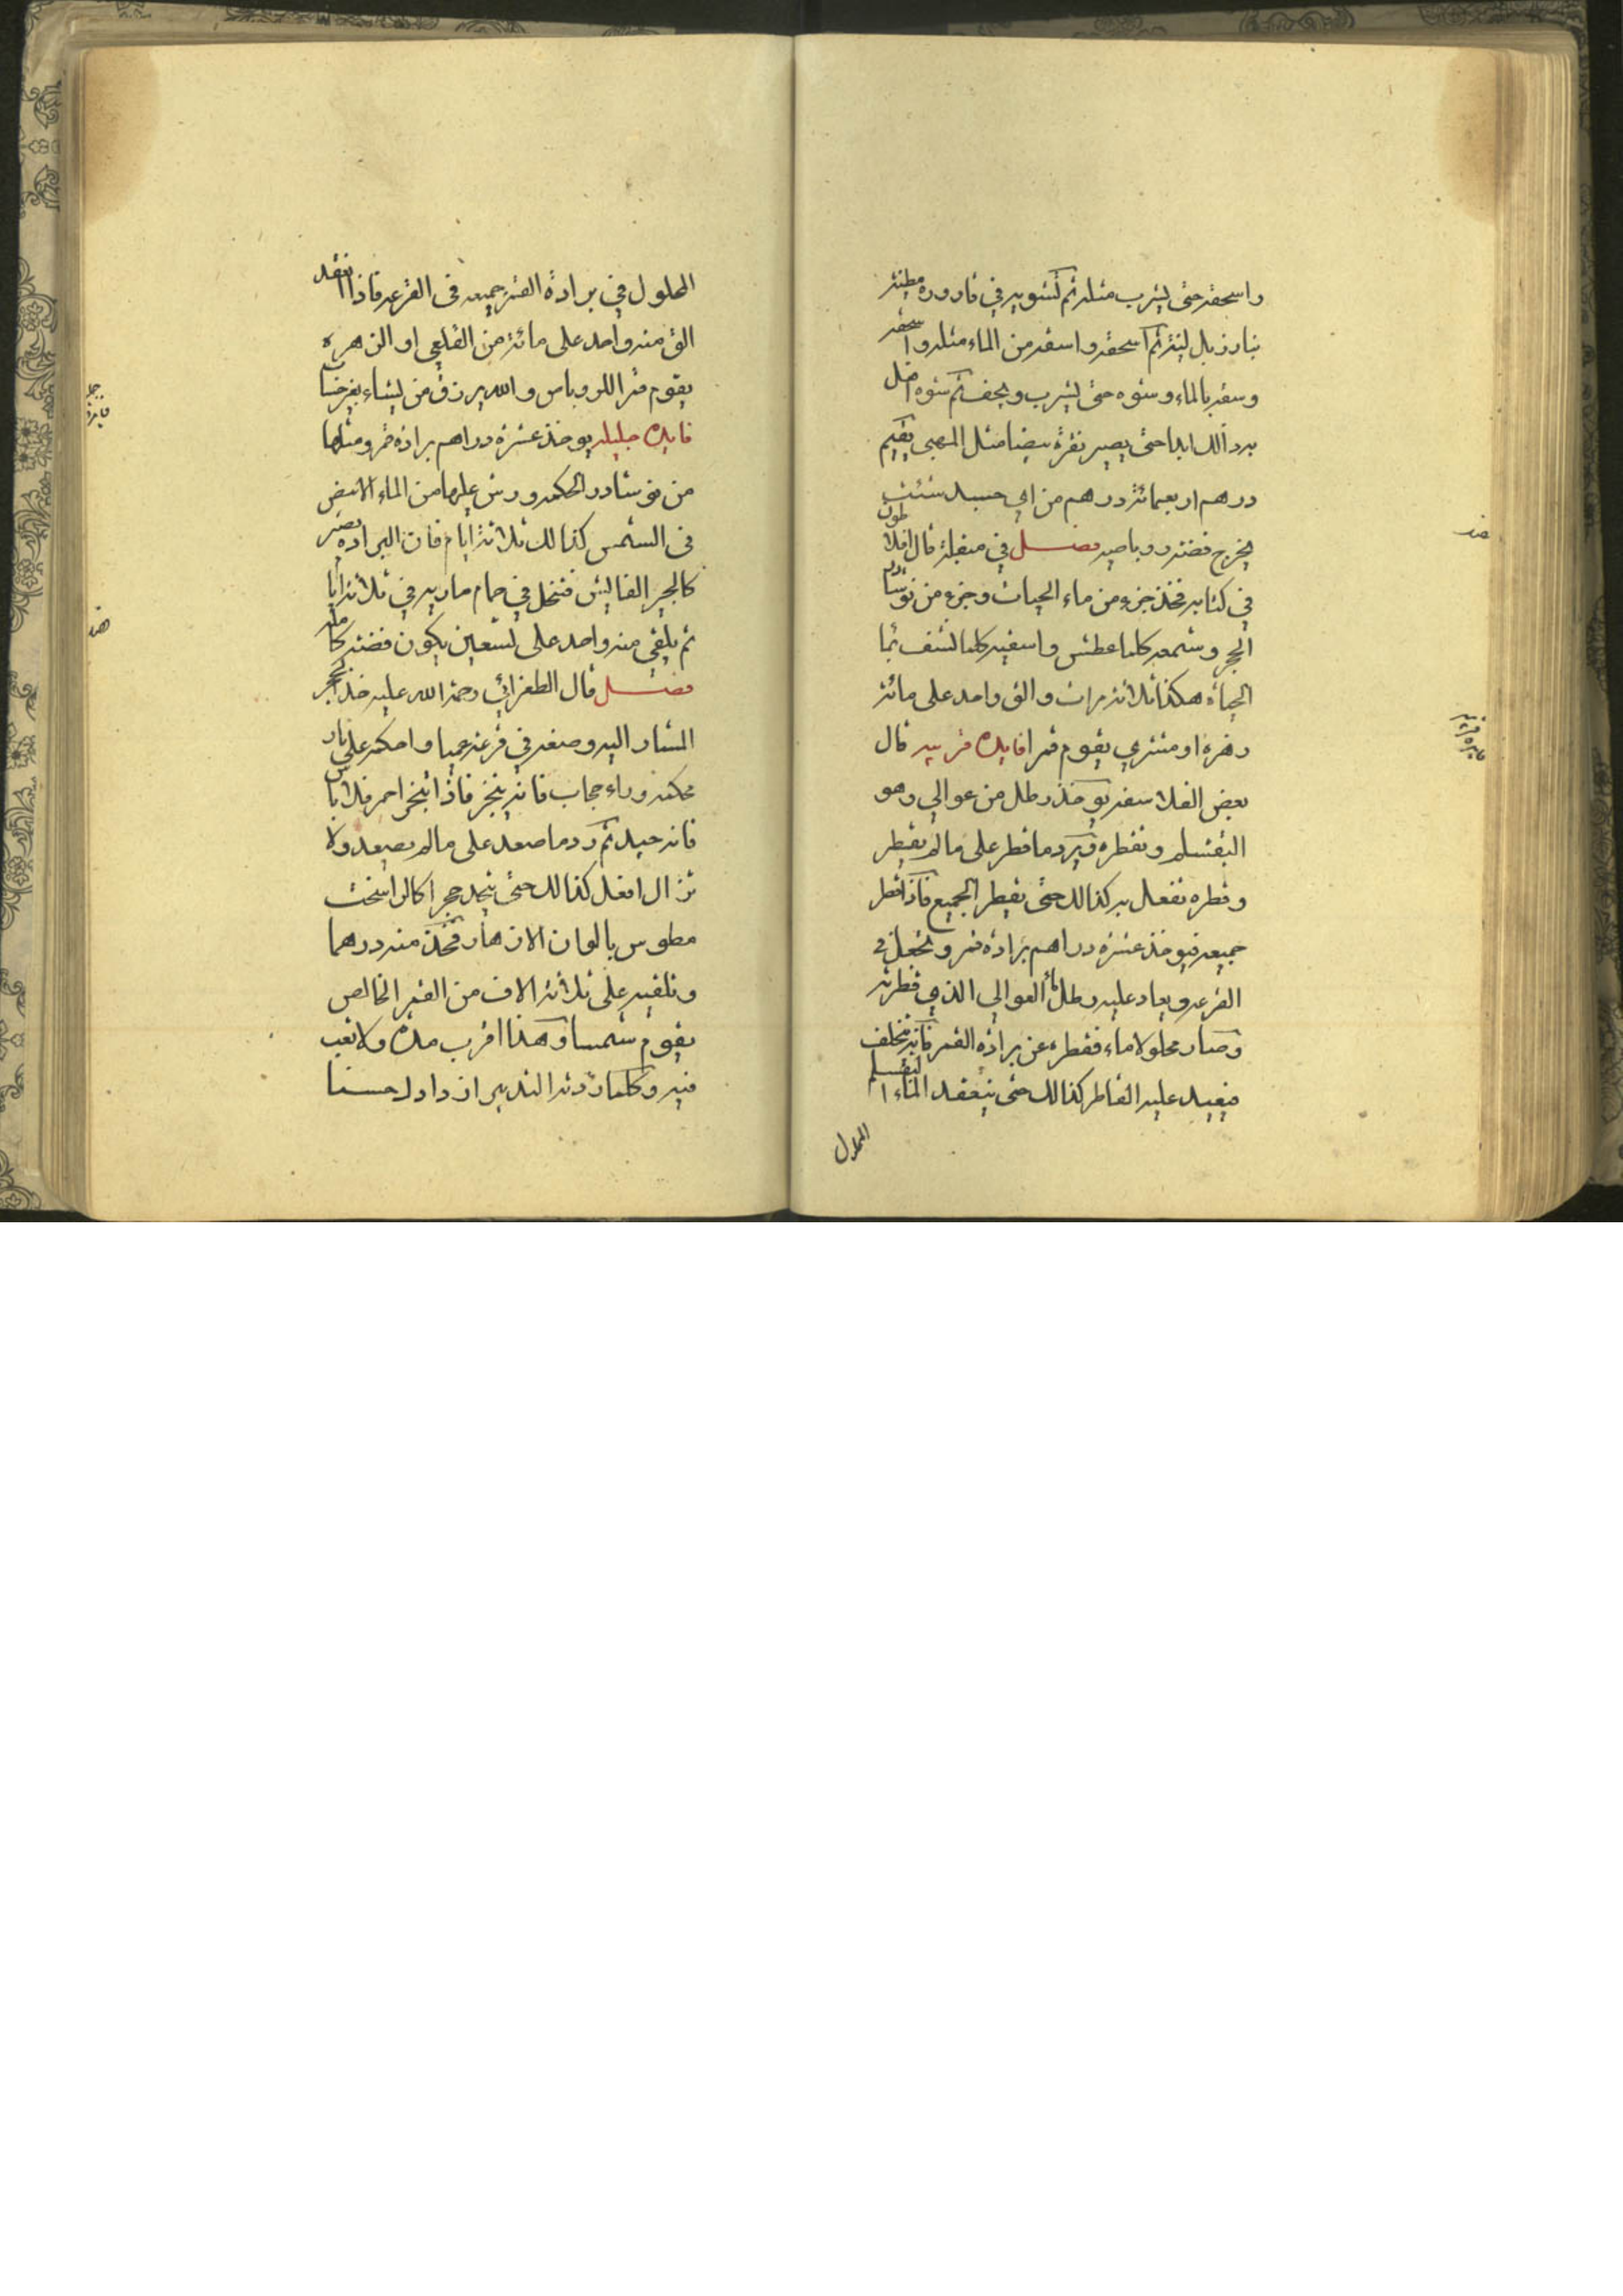 واسحقه حتى يشرب مثله ثم تشويه في قارورة مطينة
بنار زبل لينة ثم اسحقه واسقه من الماء مثله واسحقه
وسقيه بالماء وشوه حتى يشرب ويجف ثم شوه افعل
به ذالك ابدا حتى يصير نقرة بيضا مثل المهى يقيم
درهم اربعمائة درهم من اي جسد شئت
يخرج فضة روباصية فصل في منقلة قال افلاطون
في كتابه فخذ جزء من ماء الحيات وجزء من نوشادر
الحجر وشمعه كلما عطش واسقيه كلما نشف بما
الحياة هكذا ثلاثة مرات والق واحد على مائة
زهرة او مشتري يقوم قمرا فايدة قريبه قال
بعض الفلاسفه يوخذ رطل من عوالي وهو
البقتسلم وتقطره ويرد ما قطر على ما لم يقطر
وقطره تفعل به كذالك حتى يقطر الجميع فاذا قطر
جميعه فيوخذ عشرة دراهم برادة قمر وتجعل في
القرعه ويعاد عليه رطل ماء العوالي الذي قطرته
وصار محلولا ماء فقطره عن برادة القمر فانه يتخلف
فيعيد عليه القاطر كذالك حتى ينعقد الماء البقتسلم
المحلول
المحلول في برادة القمر جميعه في القرعه فاذا انعقد
الق منه واحد على مائة من القلعي او الزهره
يقوم قمرا للروباص والله يرزق من يشاء بغير حساب
فايده جليله يوخذ عشرة دراهم برادة قمر ومثلها
من نوشادر الحكمه ورش عليها من الماء الابيض
في الشمس كذالك ثلاثة ايام فان البراده تصير
كالجير الفاليش فتنحل في حمام ماريه في ثلاثة ايام
ثم يلقي منه واحد على تسعين يكون فضة كامله
فصل قال الطغرائي رحمة الله عليه خذ الحجر
المشار اليه وصفه في قرعة عميا واحكمه على نار
محكمة وراء حجاب فانه يتبخر فاذا تبخر احمر فلا باس
فانه جيد ثم رد ما صعد على ما لم يصعد ولا
تزال افعل كذالك حتى تجد حجرا كالراسخت
مطوس بالوان الازهار فخذ منه درهما
وتلقيه على ثلاثة الاف من القمر الخالص
يقوم شمسا وهذا اقرب مدة ولا تعب
فيه وكلما زدته التدبير ازداد لحسنا